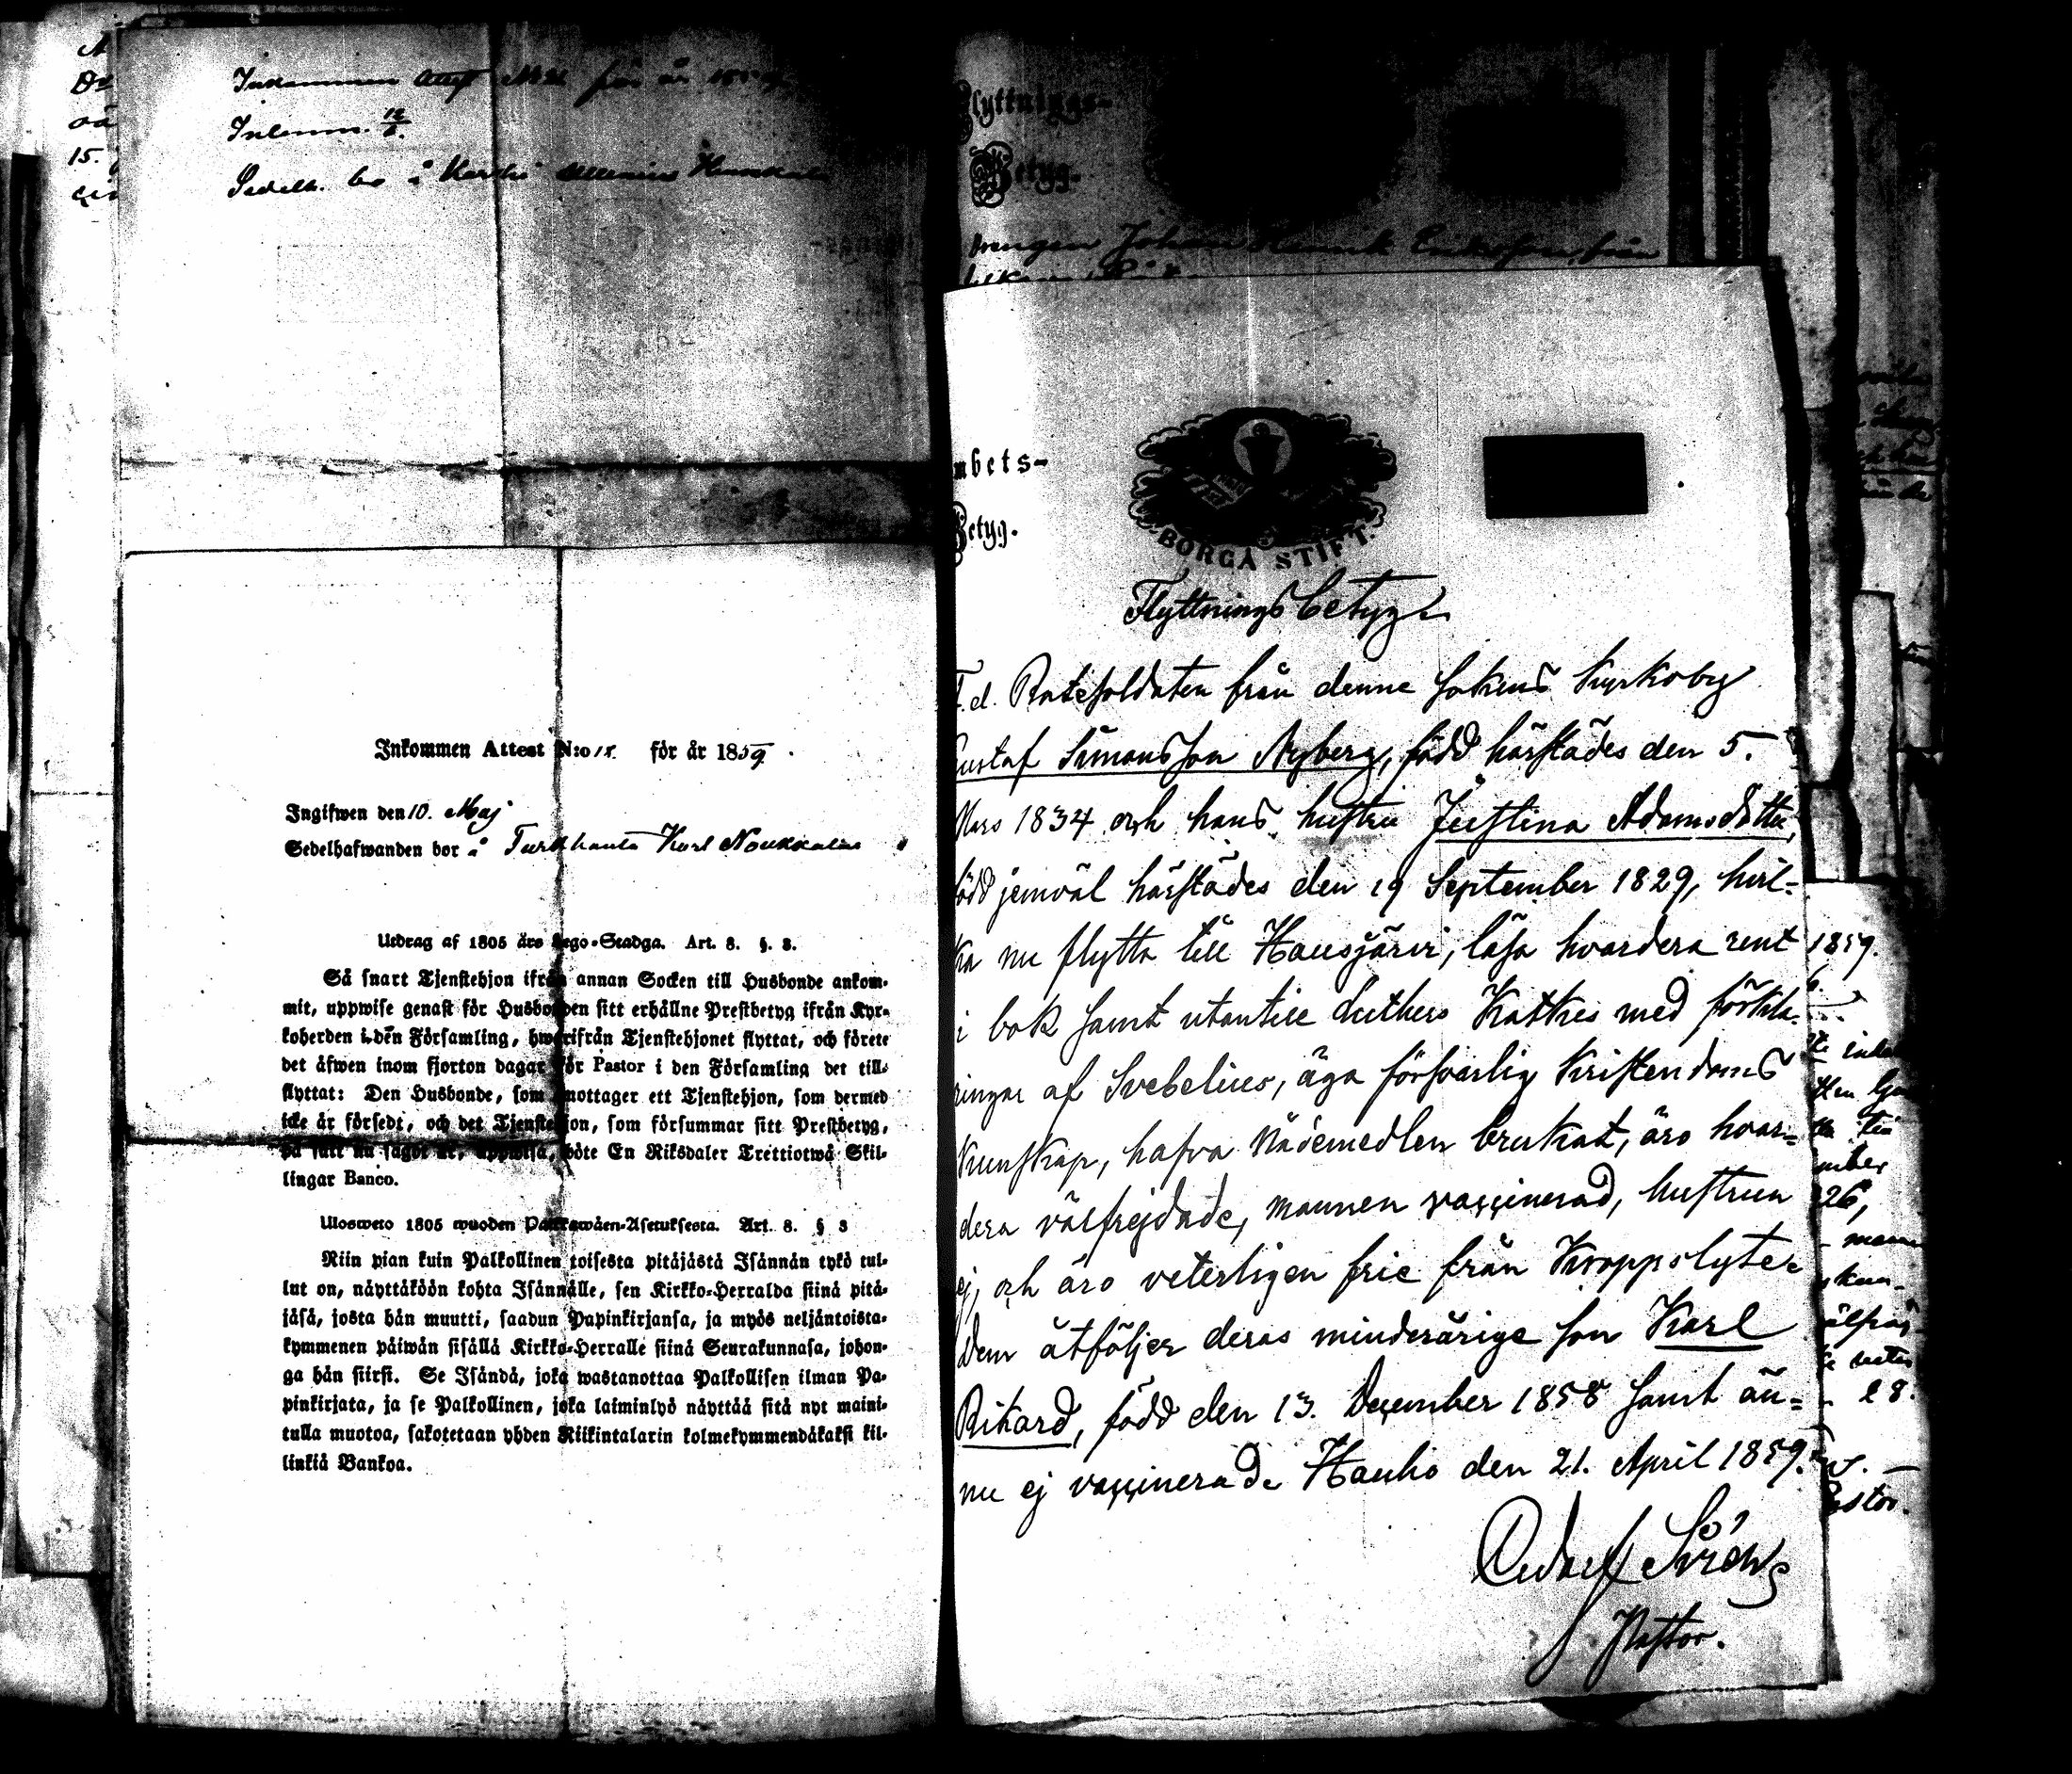 Inkommen Attest
Inlemn. 12/6.
Sedelh. bor å
Inkommen Attest N:o 18. för år 1859.
Ingifwen den 10. Maj
Sedelhafwanden bor å Turkhauta Karl Noukkalas
Utdrag af 1805 års Lego-Stadga. Art. 8. §. 3.
Så snart Tjenstehjon ifrån annan Socken till Husbonde ankom-
mit, uppwise genast för Husbonden sitt erhållne Prestbetyg ifrån Kyr-
koherden i den Församling, hwarifrån Tjenstehjonet flyttat, och förete
det äfwen inom fjorton dagar för Pastor i den Församling det till-
flyttat: Den Husbonde, som emottager ett Tjenstehjon, som dermed
icke är försedt, och det Tjenstehjon, som försummar sitt Prestbetyg,
på sätt nu sagdt är, uppwisa, böte En Riksdaler Trettiotwå Skil-
lingar Banco.
Ulosweto 1805 wuoden Palkkawäen-Asetuksesta. Art. 8. § 3
Niin pian kuin Palkollinen toisesta pitäjästä Isännän tykö tul-
lut on, näyttäköön kohta Isännälle, sen Kirkko-Herralda siinä pitä-
jäsä, josta hän muutti, saadun Papinkirjansa, ja myös neljäntoista-
kymmenen päiwän sisällä Kirkko-Herralle siinä Seurakunnasa, johon-
ga hän siirsi. Se Isändä, joka wastanottaa Palkollisen ilman Pa-
pinkirjata, ja se Palkollinen, joka laiminlyö näyttää sitä nyt maini-
tulla muotoa, sakotetaan yhden Riikintalarin kolmekymmendäkaksi kil-
linkiä Bankoa.
Flyttnings-
Betyg.
Drengen Johan Henrik från
mbets-
Betyg.
BORGÅ STIFT.
Flyttningsbetyg
F.d. Rotesoldaten från denne sokens Kyrkoby
Gustaf Simonsson Nyberg, född härstädes den 5.
Mars 1834 och hans hustru Justina Adamsdotter,
född jemväl härstädes den 19 September 1829, hvil-
ka nu flytta till Hausjärvi, läsa hvardera rent
i bok samt utantill Luthers Katkes med förkla-
ringar af Svebelius, äga försvarlig Kristendoms
kunskap, hafva Nådemedlen brukat, äro hvar-
dera välfrejdade, mannen vaccinerad, hustrun
ej, och äro veterligen frie från Kroppslyte.
Dem åtföljer deras minderårige son Karl
Rikard, född den 13. December 1858 samt än-
nu ej vaccinerad. Hauho den 21. April 1859.
Pastor.
1859.
26,
28.